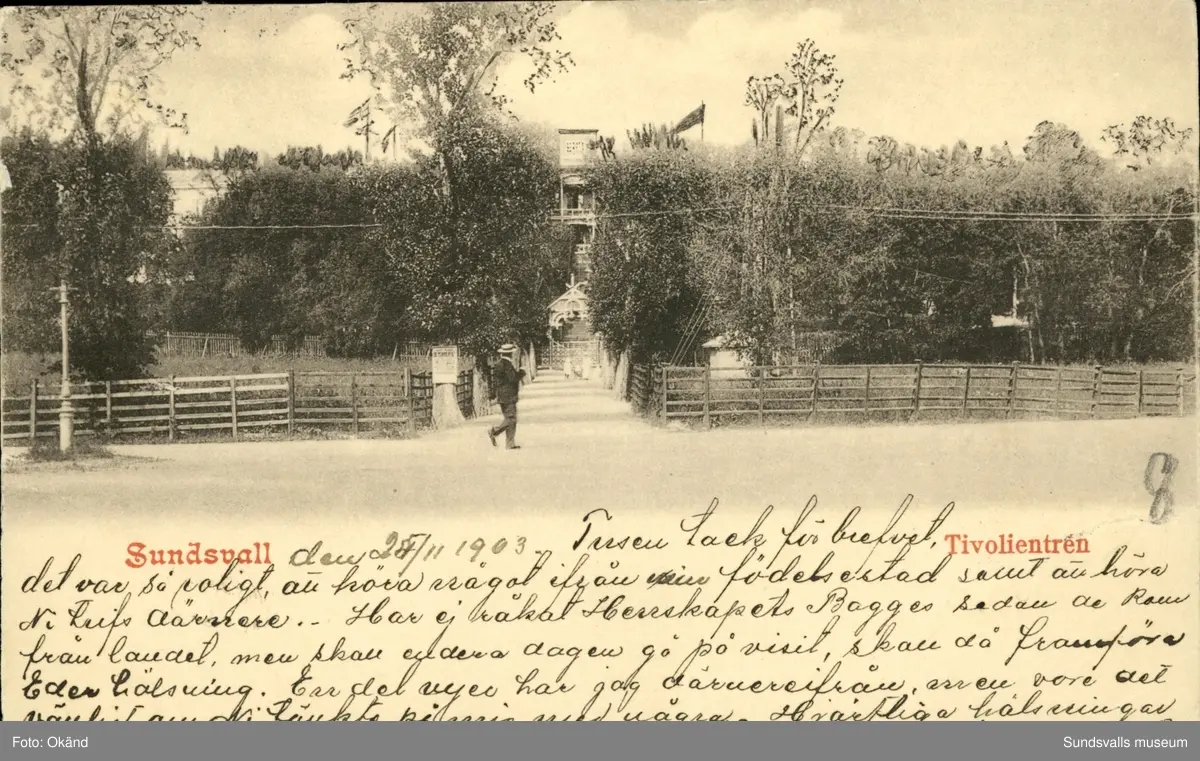 8
Sundsvall den 25/11 1903. Tusen tack för brefvet, Tivolientrén
det var så roligt, att höra något ifrån min födelsestad samt att höra
Ni trifs därnere.. Har ej råkat Herrskapets Bagges sedan de kom
från landet, men skall endera dagen gå på visit, skall då framföra
Eder hälsning. En del vyer har jag därnereifrån, men vore det
vänligt om Ni tänkte på mig med några. Hjärtliga hälsningar
Foto: Okänd
Sundsvalls museum